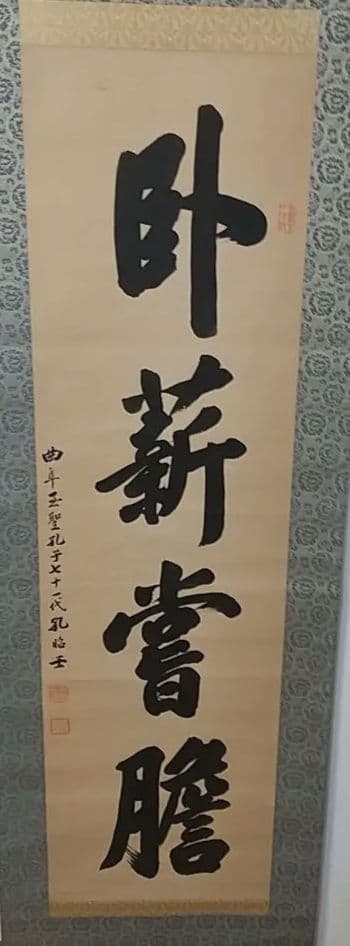 臥薪嘗膽
曲阜至聖孔子七十一代孔昭壬